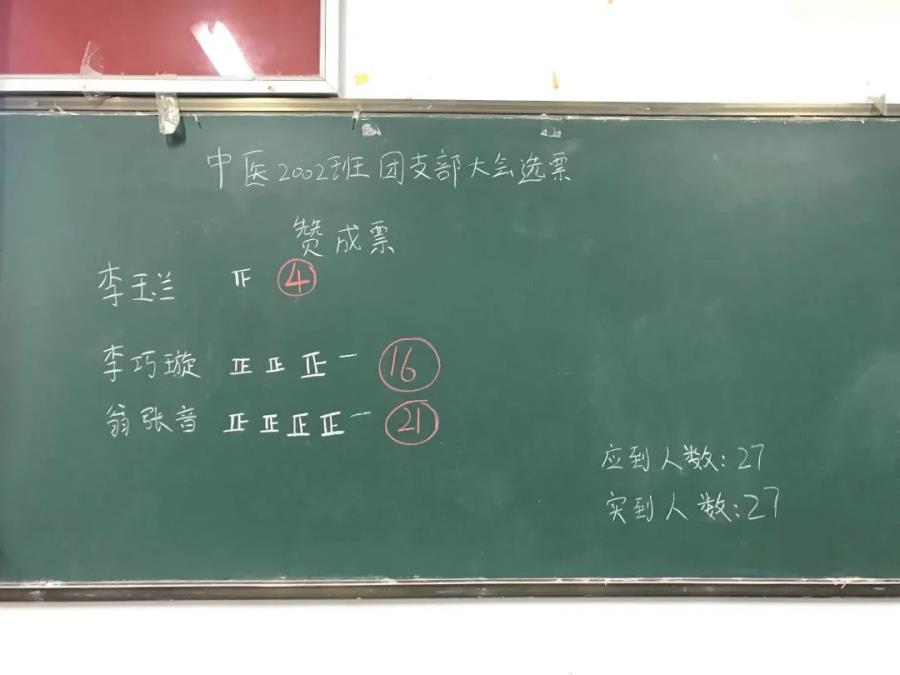 中医2002班团支部大会选票
赞成票
李玉兰 𝍬 ④
李巧璇 正 正 正 一 ⑯
翁张音 正 正 正 正 一 ㉑
应到人数:27
实到人数:27